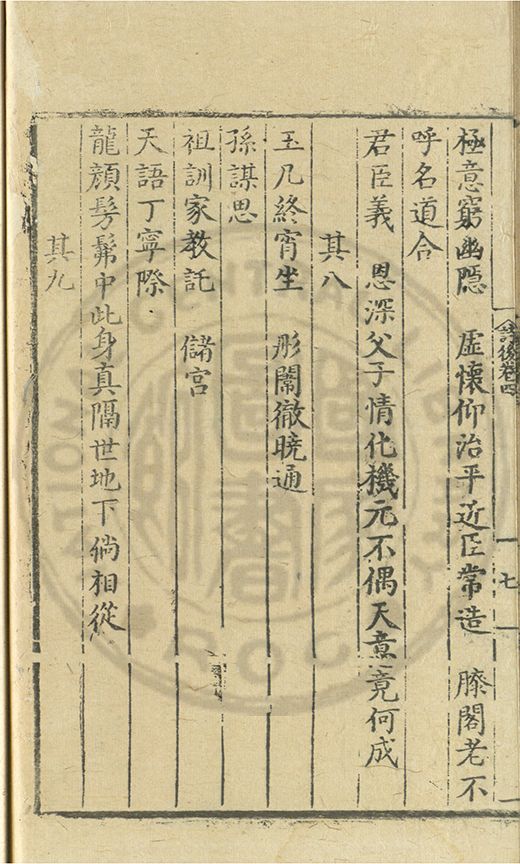 極意窮幽隱　虛懷仰治平近臣常造　膝閣老不
呼名道合
君臣義　恩深父子情化機元不偶天意竟何成
其八
玉几終宵坐　彤闈徹曉通
孫謀思
祖訓家教託　儲宮
天語丁寧際
龍顏髣髴中此身真隔世地下倘相從
其九
詩後卷四
七